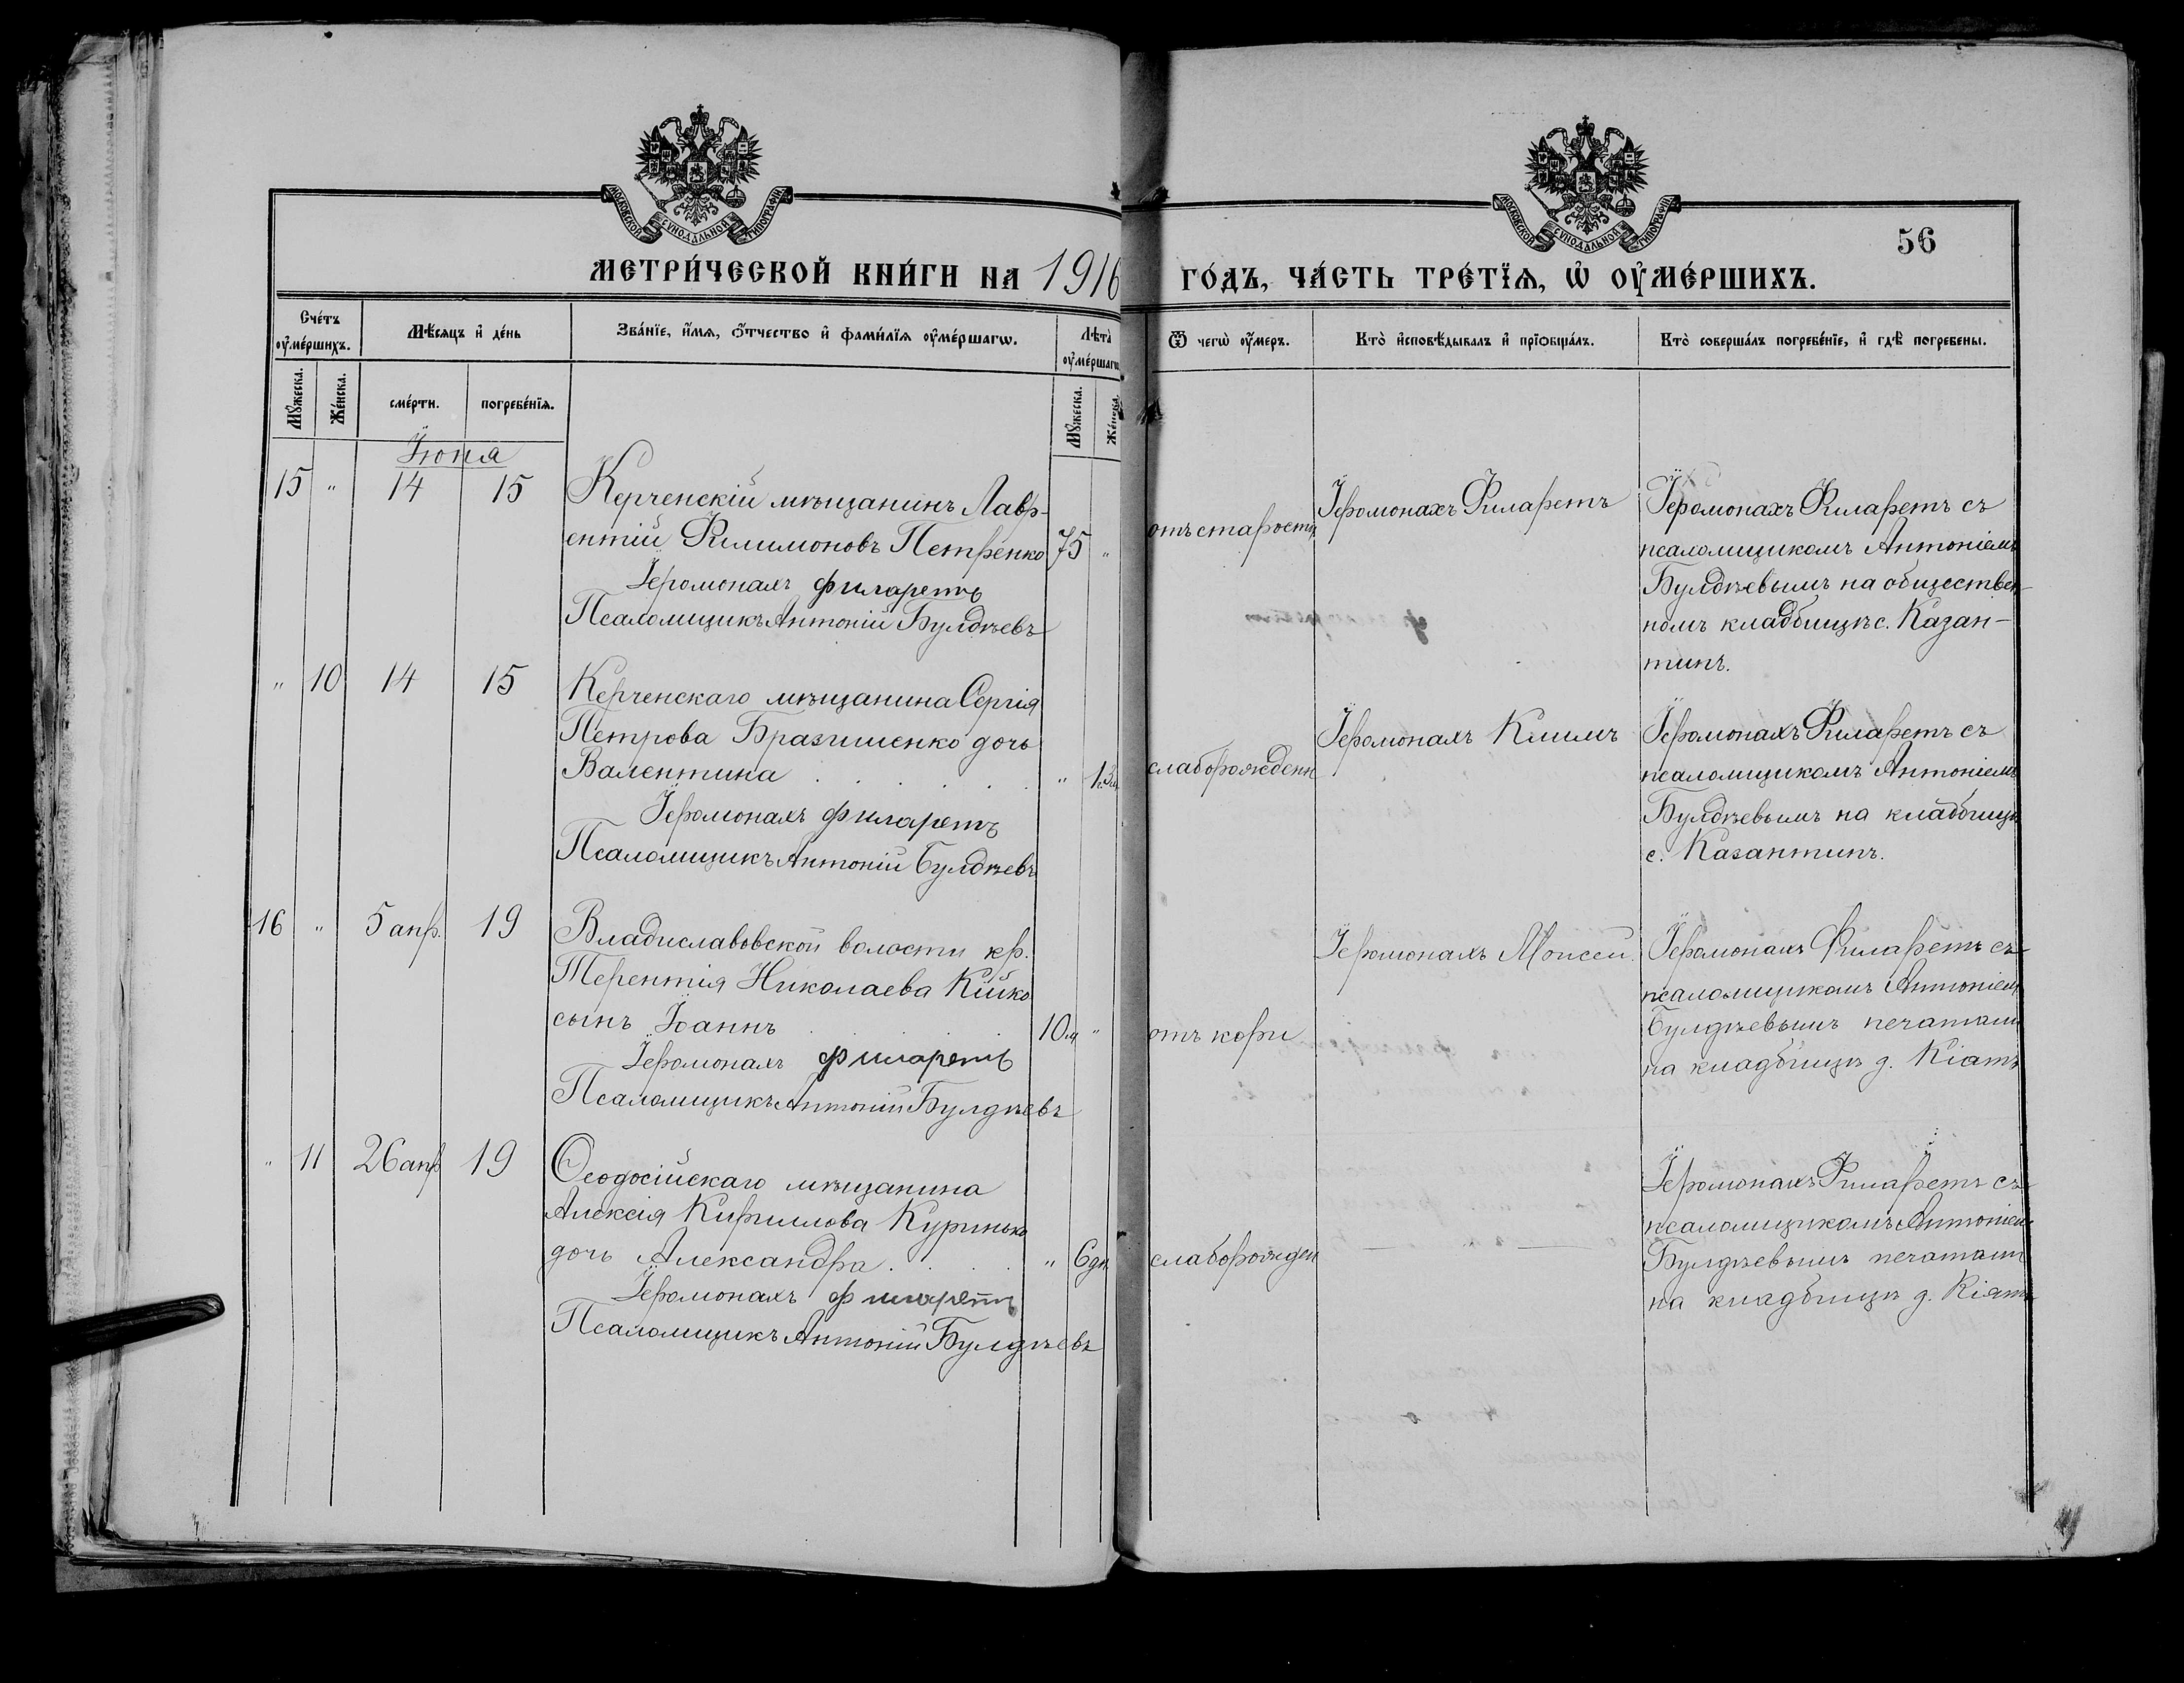 МОСКОВСКОЙ СѴНОДАЛЬНОЙ ТИПОГРАФІИ
МОСКОВСКОЙ СѴНОДАЛЬНОЙ ТИПОГРАФІИ
56
МЕТРИ́ЧЕСКОЙ КНИ́ГИ НА 1916 ГО́ДЪ, ЧА́СТЬ ТРЕ́ТЇѦ, Ѡ҆ ОУ҆МЕ́РШИХЪ.
Сче́тъ оу҆ме́ршихъ.
Мѣ́сяцъ и҆ де́нь
Зва́нїе, и҆́мѧ, ѻ҆́тчество и҆ фами́лїѧ оу҆ме́ршагѡ.
Лѣта̀ оу҆ме́ршагѡ
Ѿ чегѡ̀ оу҆́меръ.
Кто̀ и҆сповѣ́дывалъ и҆ прїѡбща́лъ.
Кто̀ соверша́лъ погребе́нїе, и҆ гдѣ̀ погребены.
Мꙋ́жеска.
Же́нска.
сме́рти.
погребе́нїѧ.
Мꙋ́жеска.
Же́нска.
Іюня
15 " 14 15 Керченскій мѣщанинъ Лавр-
ентій Филимоновъ Петренко 75 "
Іеромонахъ Филаретъ
Псаломщикъ Антоній Булдѣевъ
отъ старости
Іеромонахъ Филаретъ
Іеромонахъ Филаретъ съ
псаломщикомъ Антоніемъ
Булдѣевымъ на обществен-
номъ кладбищѣ с. Казан-
типъ.
" 10 14 15 Керченскаго мѣщанина Сергія
Петрова Бразименко дочь
Валентина "
Іеромонахъ Филаретъ
Псаломщикъ Антоній Булдѣевъ
слаборожден
Іеромонахъ Климъ
Іеромонахъ Филаретъ съ
псаломщикомъ Антоніемъ
Булдѣевымъ на кладбищѣ
с. Казантипъ.
16 " 5 апр. 19 Владиславовской волости кр.
Терентія Николаева Кійко
сынъ Іоаннъ 10 м "
Іеромонахъ Филаретъ
Псаломщикъ Антоній Булдѣевъ
отъ кори
Іеромонахъ Моисей.
Іеромонахъ Филаретъ съ
псаломщикомъ Антоніем
Булдѣевымъ печатали
на кладбищѣ д. Кіатъ
" 11 26 апр 19 Ѳеодосійскаго мѣщанина
Алексія Кириллова Куринько
дочь Александра "  6 дн.
Іеромонахъ Филаретъ
Псаломщикъ Антоній Булдѣевъ
слаборожден
—
Іеромонахъ Филаретъ съ
псаломщикомъ Антоніем
Булдѣевымъ печатали
на кладбищѣ д. Кіатъ